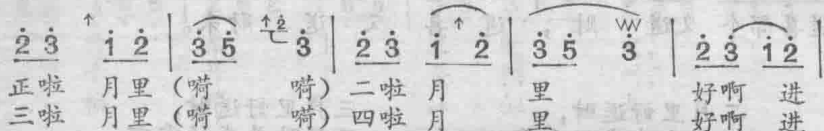 2̣̇ 3̇ ↑ 1̇ 2̇ | 3̇ 5̇ ↑2̇ 3̇ | 2̇ 3̇ 1̇ ↑ 2̇ | 3̇ 5̇ 3̇ | 2̇ 3̇ 1̇ 2̇
正啦 月里 (嗬 嗬) 二啦 月 里 好啊 进
三啦 月里 (嗬 嗬) 四啦 月 里 好啊 进